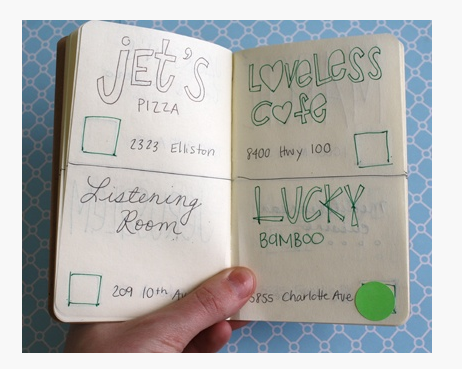 JET'S
PIZZA
2323 Elliston
Listening
Room
209 10th
LOVELESS
CAFE
8400 Hwy 100
LUCKY
BAMBOO
5855 Charlotte Ave